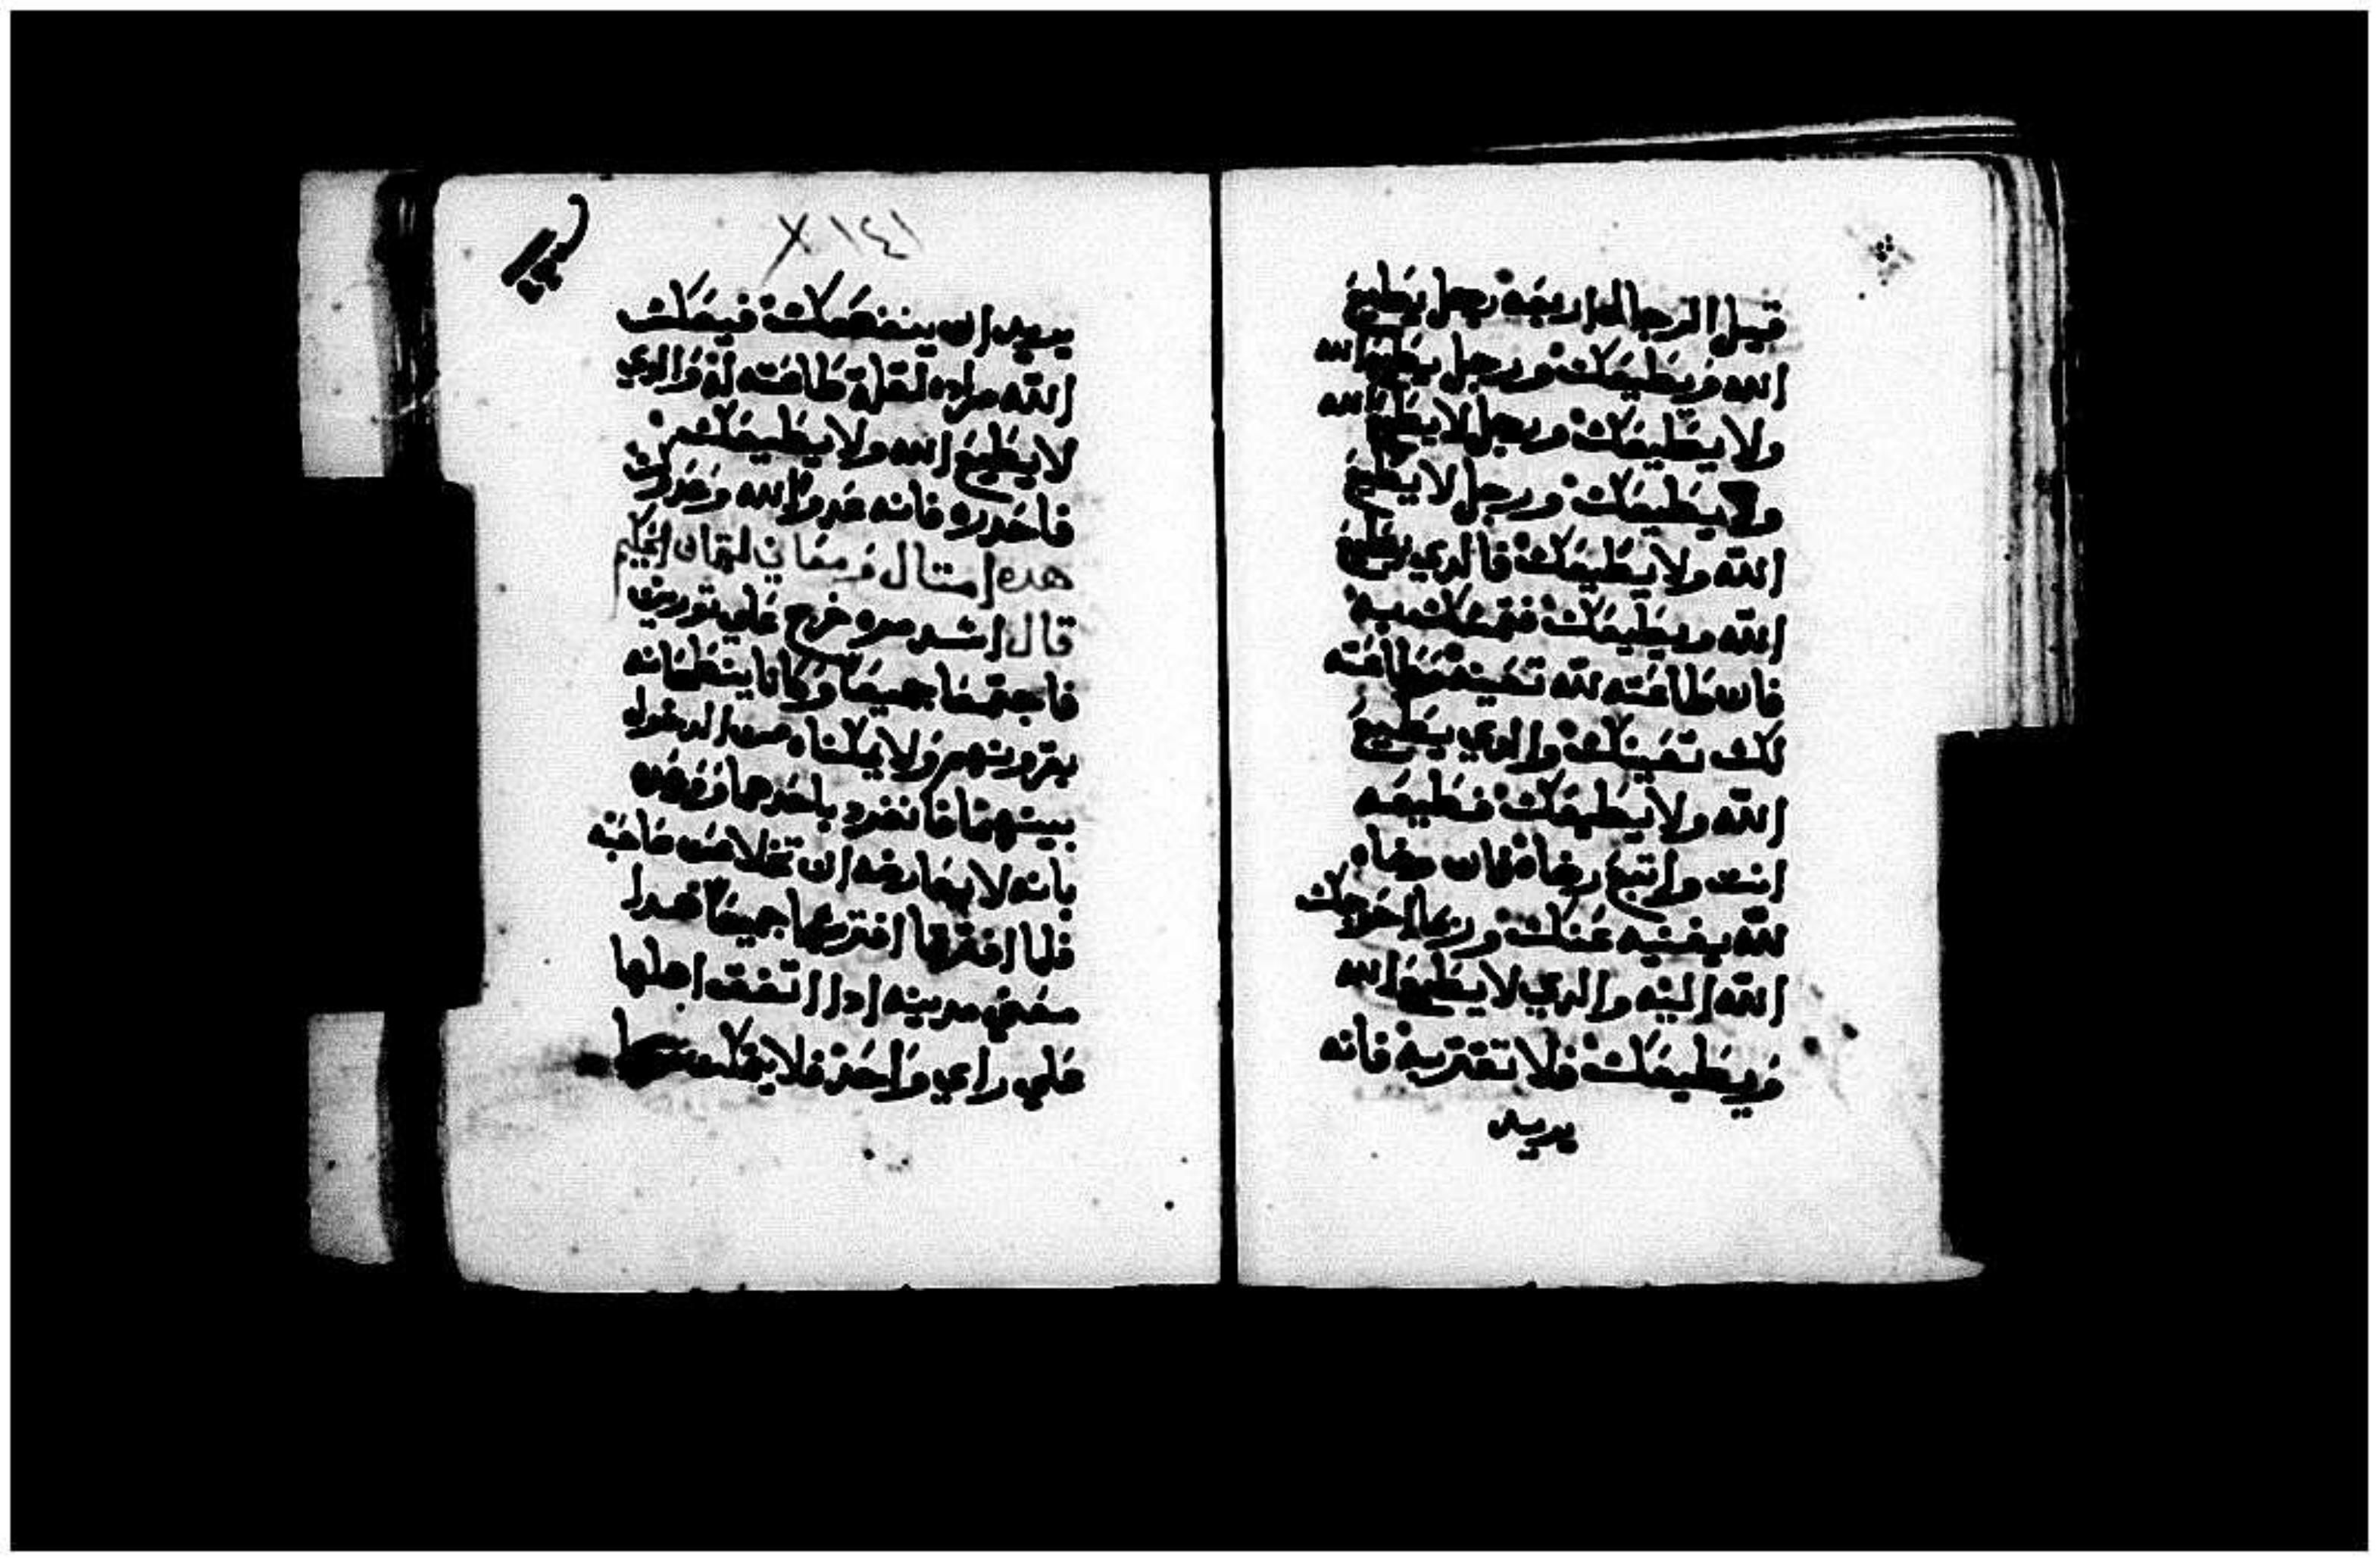 قيل الرجال اربعه رجل يطيع
الله ويطيعك ورجل يطيع الله
ولا يطيعك ورجل لا يطيع الله
ويطيعك ورجل لا يطيع
الله ولا يطيعك فالدي يطيع
الله ويطيعك فتمسك به
فان طاعته لله تعينه وطاعته
لك تعينك والدي يطيع
الله ولا يطيعك فطيعه
انت واتبع رضاه فان رضاه
لله يغنيه عنك وربما احوجك
الله اليه والدي لا يطيع الله
ويطيعك فلا تقتربه فانه
يريد
١٤١
يريد ان ينفعك فيمكث
الله مراده لقلة طاعته له والدي
لا يطيع الله ولا يطيعك
فاحدره فانه عدو الله وعدوك
هده امتال ومعاني لقمان الحكيم
قال اسد مره خرج علي تورين
فاجتمعا جميعا وكانا ينطحانه
بقرونهم ولا يمكناه من الدخول
بينهما فانفرد باحدهما
بانه لا يعارضه ان تخلا عن صاحبه
فلما افترقا افترسهما جميعا هدا
معني مدينه ادا اتفقت اهلها
علي راي واحد فلا يمكن